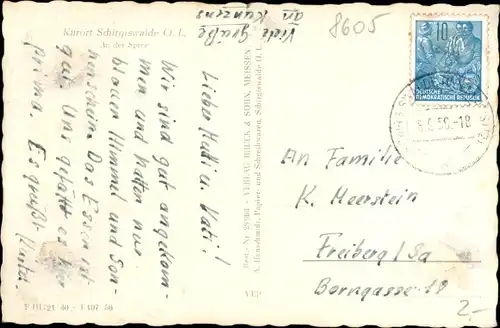 Kurort Schirgiswalde O. L.
An der Spree
Viele Grüße
an Kunzens
8605
Lieber Hatti u. Kati!
Wir sind gut angekom-
men und hatten nur
blauen Himmel und Son-
nenschein. Das Essen ist
gut. Uns gefällt es hier
prima. Es grüßt
Best.-Nr. VERLAG BRÜCK & SOHN, MEISSEN
A. Hentschmidt, Papier- und Schreibwaren, Schirgiswalde O. L.
VEP
10
DEUTSCHE
DEMOKRATISCHE REPUBLIK
An Familie
K. Heerstein
Freiberg / Sa
Borngasse 18
2.-